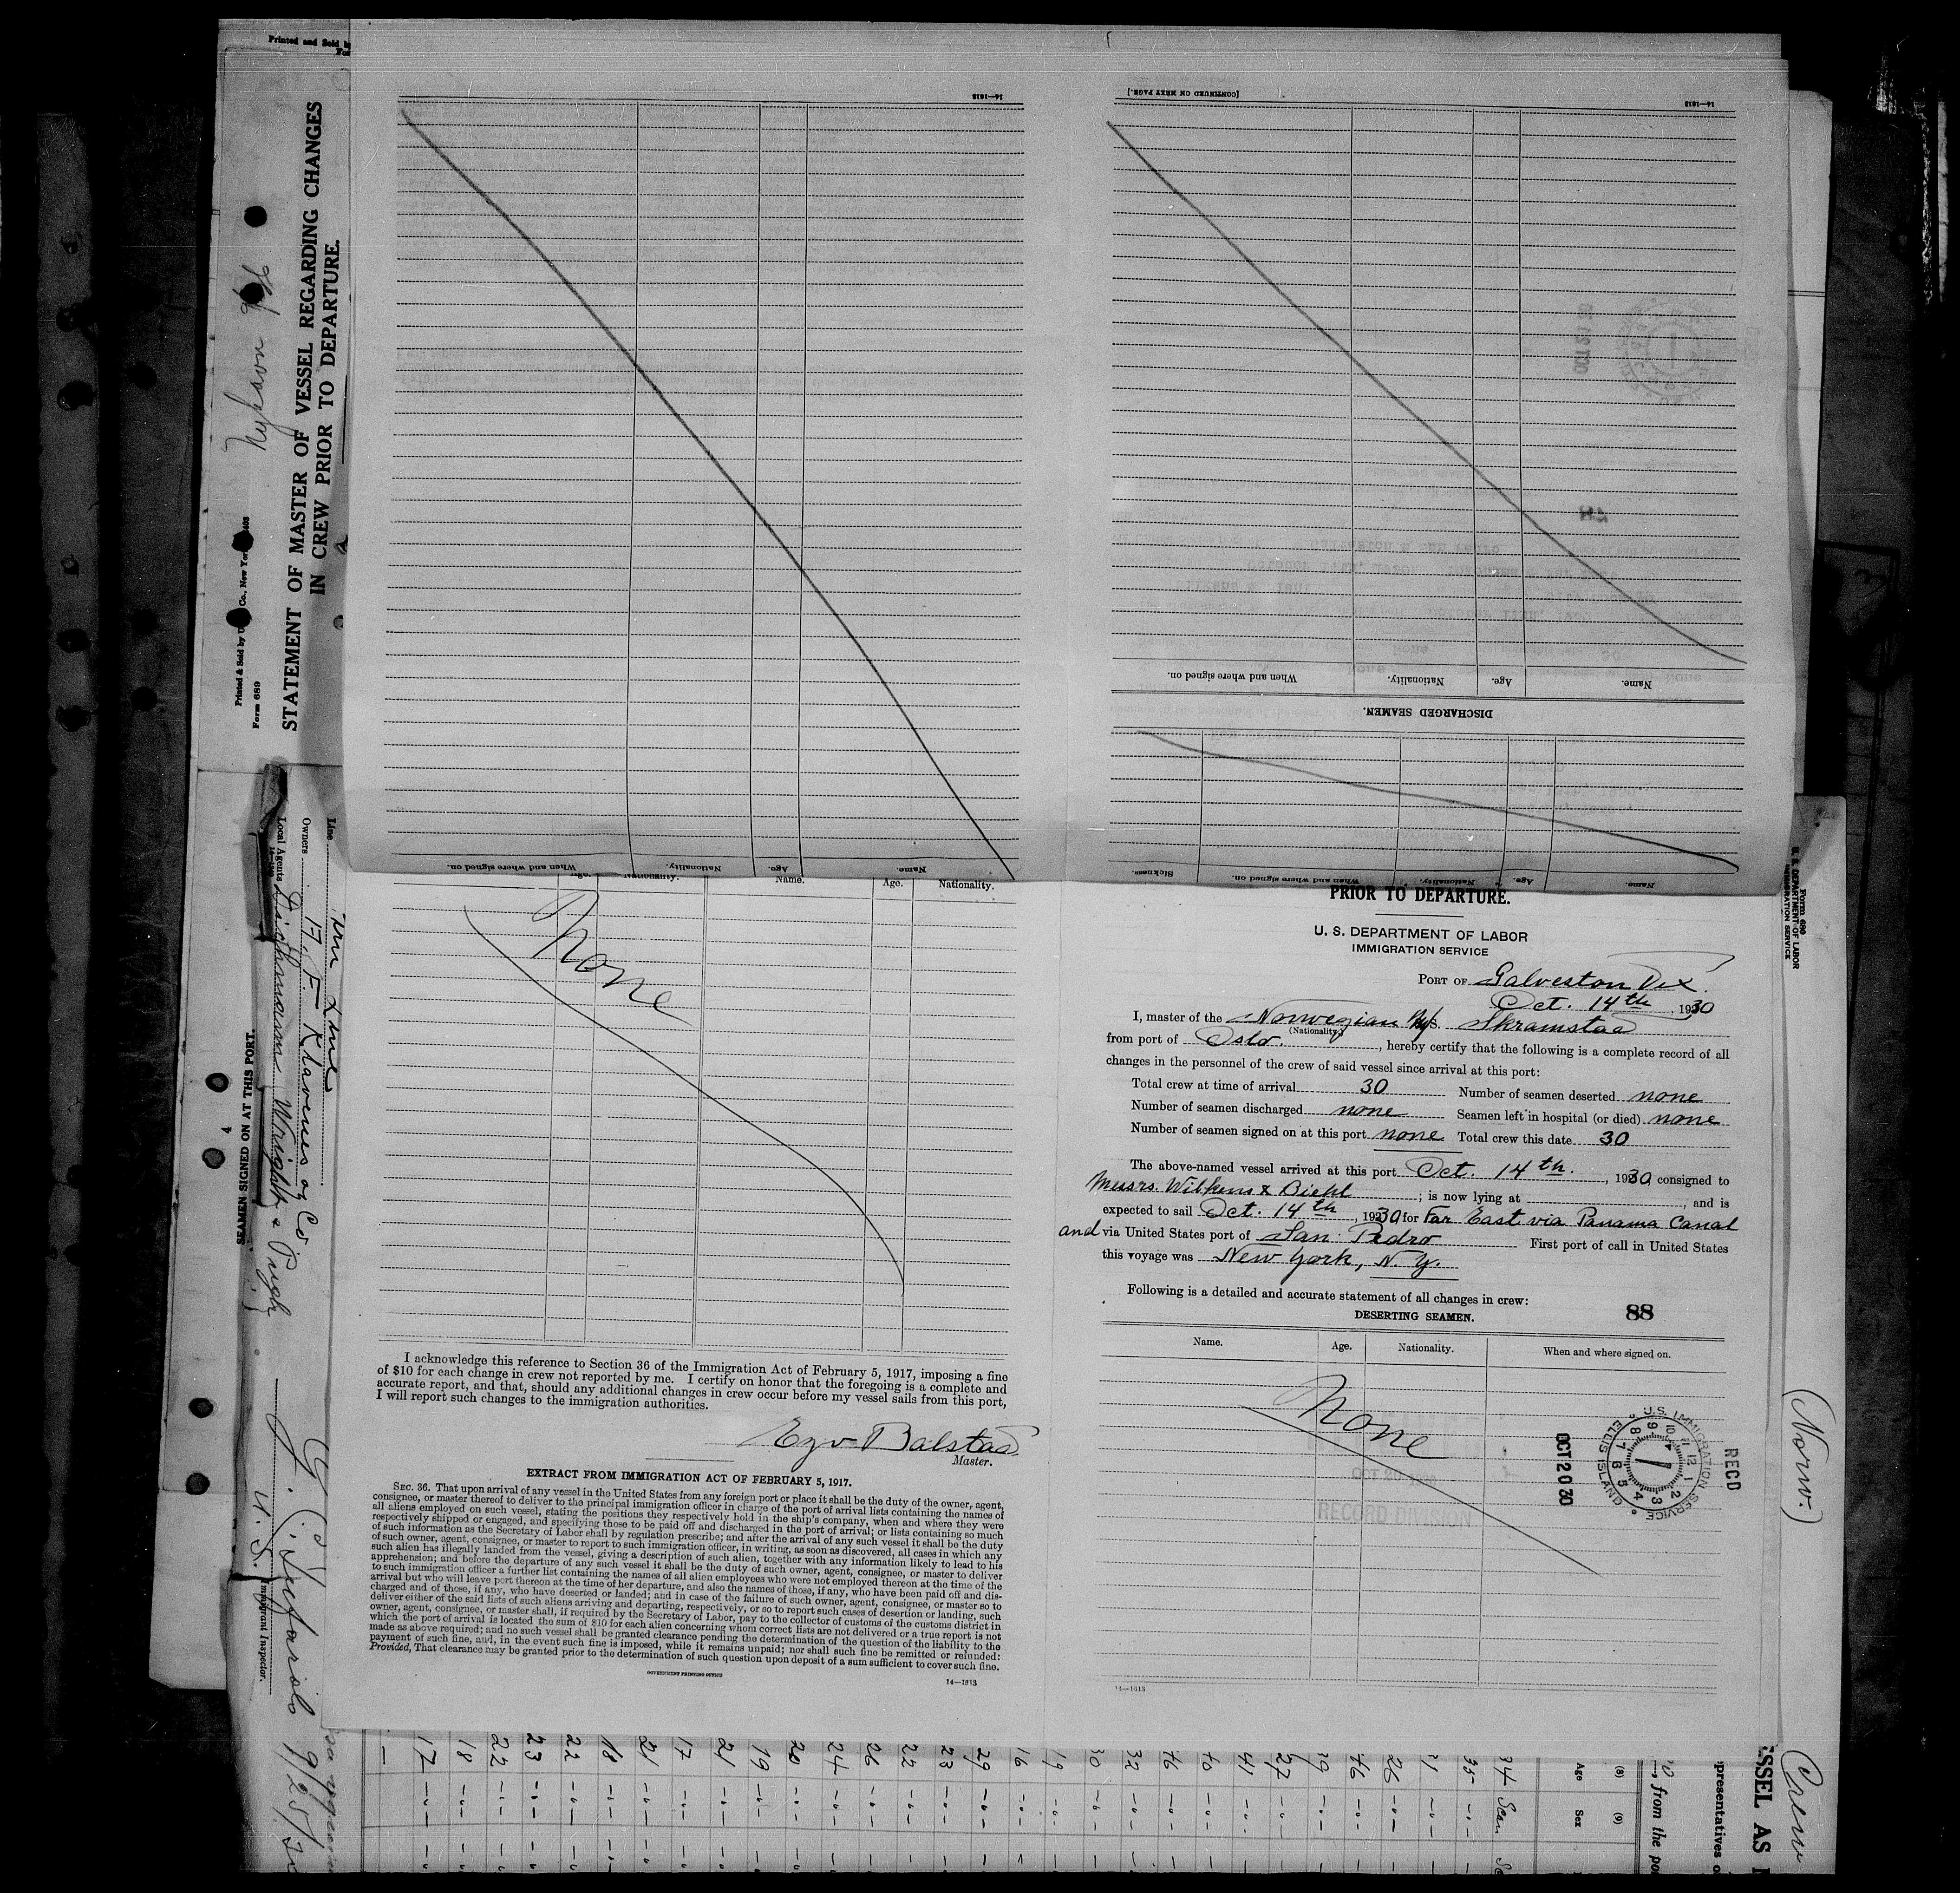 Printed and Sold b
STATEMENT OF MASTER OF VESSEL REGARDING CHANGES
IN CREW PRIOR TO DEPARTURE.
Form 689
Line
Owners A. F. Klaveness og Co
Local Agents Dichmann Wright & Pugh
SEAMEN SIGNED ON AT THIS PORT.
4
U. S. Immigrant Inspector.
9/25/30
14—1613
When and where signed on. Nationality. Age. Name.
[CONTINUED ON NEXT PAGE.]
14—1613
When and where signed on. Nationality. Age. Name.
DISCHARGED SEAMEN.
Sickness. When and where signed on. Nationality. Age. Name.
Name. Age. Nationality.
None
I acknowledge this reference to Section 36 of the Immigration Act of February 5, 1917, imposing a fine
of $10 for each change in crew not reported by me. I certify on honor that the foregoing is a complete and
accurate report, and that, should any additional changes in crew occur before my vessel sails from this port,
I will report such changes to the immigration authorities.
Balstad
Master.
EXTRACT FROM IMMIGRATION ACT OF FEBRUARY 5, 1917.
SEC. 36. That upon arrival of any vessel in the United States from any foreign port or place it shall be the duty of the owner, agent,
consignee, or master thereof to deliver to the principal immigration officer in charge of the port of arrival lists containing the names of
all aliens employed on such vessel, stating the positions they respectively hold in the ship's company, when and where they were
respectively shipped or engaged, and specifying those to be paid off and discharged in the port of arrival; or lists containing so much
of such information as the Secretary of Labor shall by regulation prescribe; and after the arrival of any such vessel it shall be the duty
of such owner, agent, consignee, or master to report to such immigration officer, in writing, as soon as discovered, all cases in which any
such alien has illegally landed from the vessel, giving a description of such alien, together with any information likely to lead to his
apprehension; and before the departure of any such vessel it shall be the duty of such owner, agent, consignee, or master to deliver
to such immigration officer a further list containing the names of all alien employees who were not employed thereon at the time of the
arrival but who will leave port thereon at the time of her departure, and also the names of those, if any, who have been paid off and dis-
charged and of those, if any, who have deserted or landed; and in case of the failure of such owner, agent, consignee, or master so to
deliver either of the said lists of such aliens arriving and departing, respectively, or so to report such cases of desertion or landing, such
owner, agent, consignee, or master shall, if required by the Secretary of Labor, pay to the collector of customs of the customs district in
which the port of arrival is located the sum of $10 for each alien concerning whom correct lists are not delivered or a true report is not
made as above required; and no such vessel shall be granted clearance pending the determination of the question of the liability to the
payment of such fine, and, in the event such fine is imposed, while it remains unpaid; nor shall such fine be remitted or refunded:
Provided, That clearance may be granted prior to the determination of such question upon deposit of a sum sufficient to cover such fine.
GOVERNMENT PRINTING OFFICE
14—1613
PRIOR TO DEPARTURE.
U. S. DEPARTMENT OF LABOR
IMMIGRATION SERVICE
PORT OF Galveston Tex.
Oct. 14th, 1930
I, master of the Norwegian M/S. Skramstad
(Nationality)
from port of Oslo, hereby certify that the following is a complete record of all
changes in the personnel of the crew of said vessel since arrival at this port:
Total crew at time of arrival 30 Number of seamen deserted none
Number of seamen discharged none Seamen left in hospital (or died) none
Number of seamen signed on at this port none Total crew this date 30
The above-named vessel arrived at this port Oct. 14th., 1930, consigned to
Messrs. Wilkens & Biehl; is now lying at, and is
expected to sail Oct. 14th, 1930 for Far East via Panama Canal
and via United States port of San Pedro First port of call in United States
this voyage was New York, N. Y.
Following is a detailed and accurate statement of all changes in crew:
88
DESERTING SEAMEN.
Name. Age. Nationality. When and where signed on.
None
RECORD DIVISION
OCT 20 30
U.S. IMMIGRATION SERVICE ELLIS ISLAND
RECD
14—1613
Form 689
U. S. DEPARTMENT OF LABOR
IMMIGRATION SERVICE
(Norw.)
Crew
SSEL AS
presentatives o
, from the po
(8) (9)
Age Sex